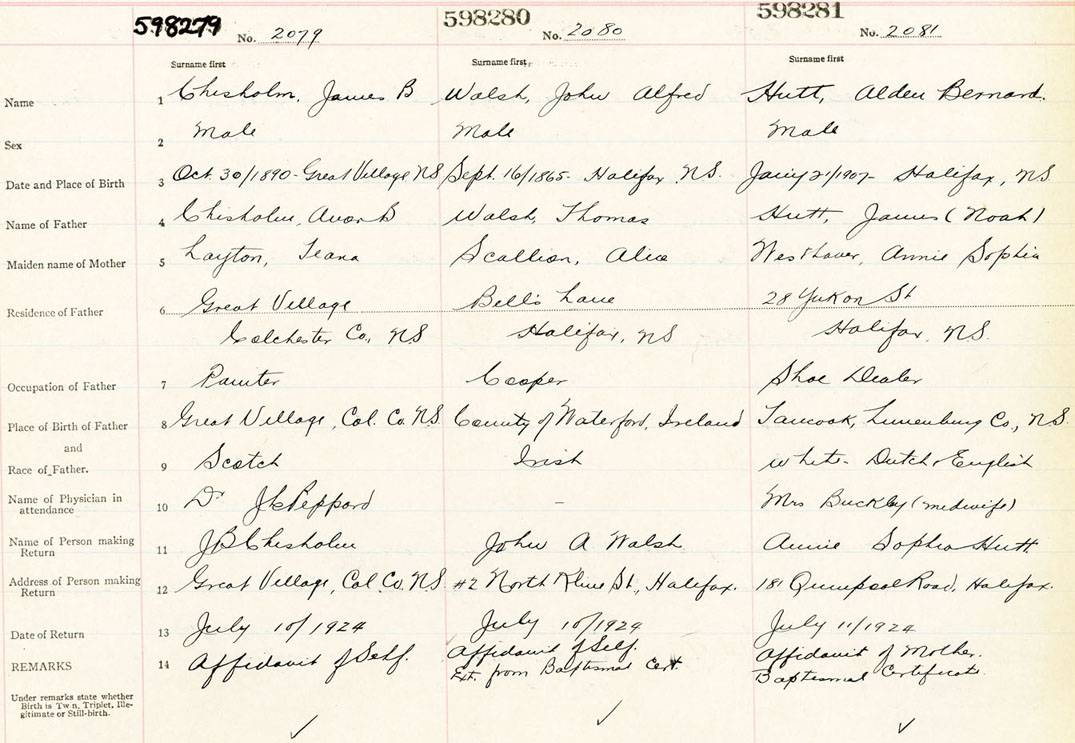 598279 598280 598281
No. 2079 No. 2080 No. 2081
Surname first Surname first Surname first
Name 1 Chisholm, James B Walsh, John Alfred Hutt, Alden Bernard.
Sex 2 Male Male Male
Date and Place of Birth 3 Oct. 30/1890- Great Village NS Sept. 16/1865- Halifax, NS. 21/1907- Halifax, NS
Name of Father 4 Chisholm, B Walsh, Thomas Hutt, James (Noah)
Maiden name of Mother 5 Layton, Scallion, Alice Westhaver, Annie Sophia
Residence of Father 6 Great Village Bell's Lane 28 Yukon St
Colchester Co, NS Halifax, NS Halifax, NS.
Occupation of Father 7 Painter Cooper Shoe Dealer
Place of Birth of Father 8 Great Village, Col. Co. NS. County of Waterford, Ireland Tancook, Lunenburg Co., NS.
and
Race of Father. 9 Scotch Irish White- Dutch & English
Name of Physician in
attendance 10 Dr Peppard – Mrs Buckley (midwife)
Name of Person making
Return 11 JB Chisholm John A Walsh Annie Sophia Hutt
Address of Person making
Return 12 Great Village, Col. Co. NS. #2 North Kline St., Halifax. 181 Quinpool Road, Halifax.
Date of Return 13 July 10/1924 July 10/1924 July 11/1924
REMARKS 14 Affidavit of Self. Affidavit of Self. Affidavit of Mother.
Ext. from Baptismal Cert. Baptismal Certificate.
Under remarks state whether
Birth is Twin, Triplet, Ille-
gitimate or Still-birth.
✓ ✓ ✓